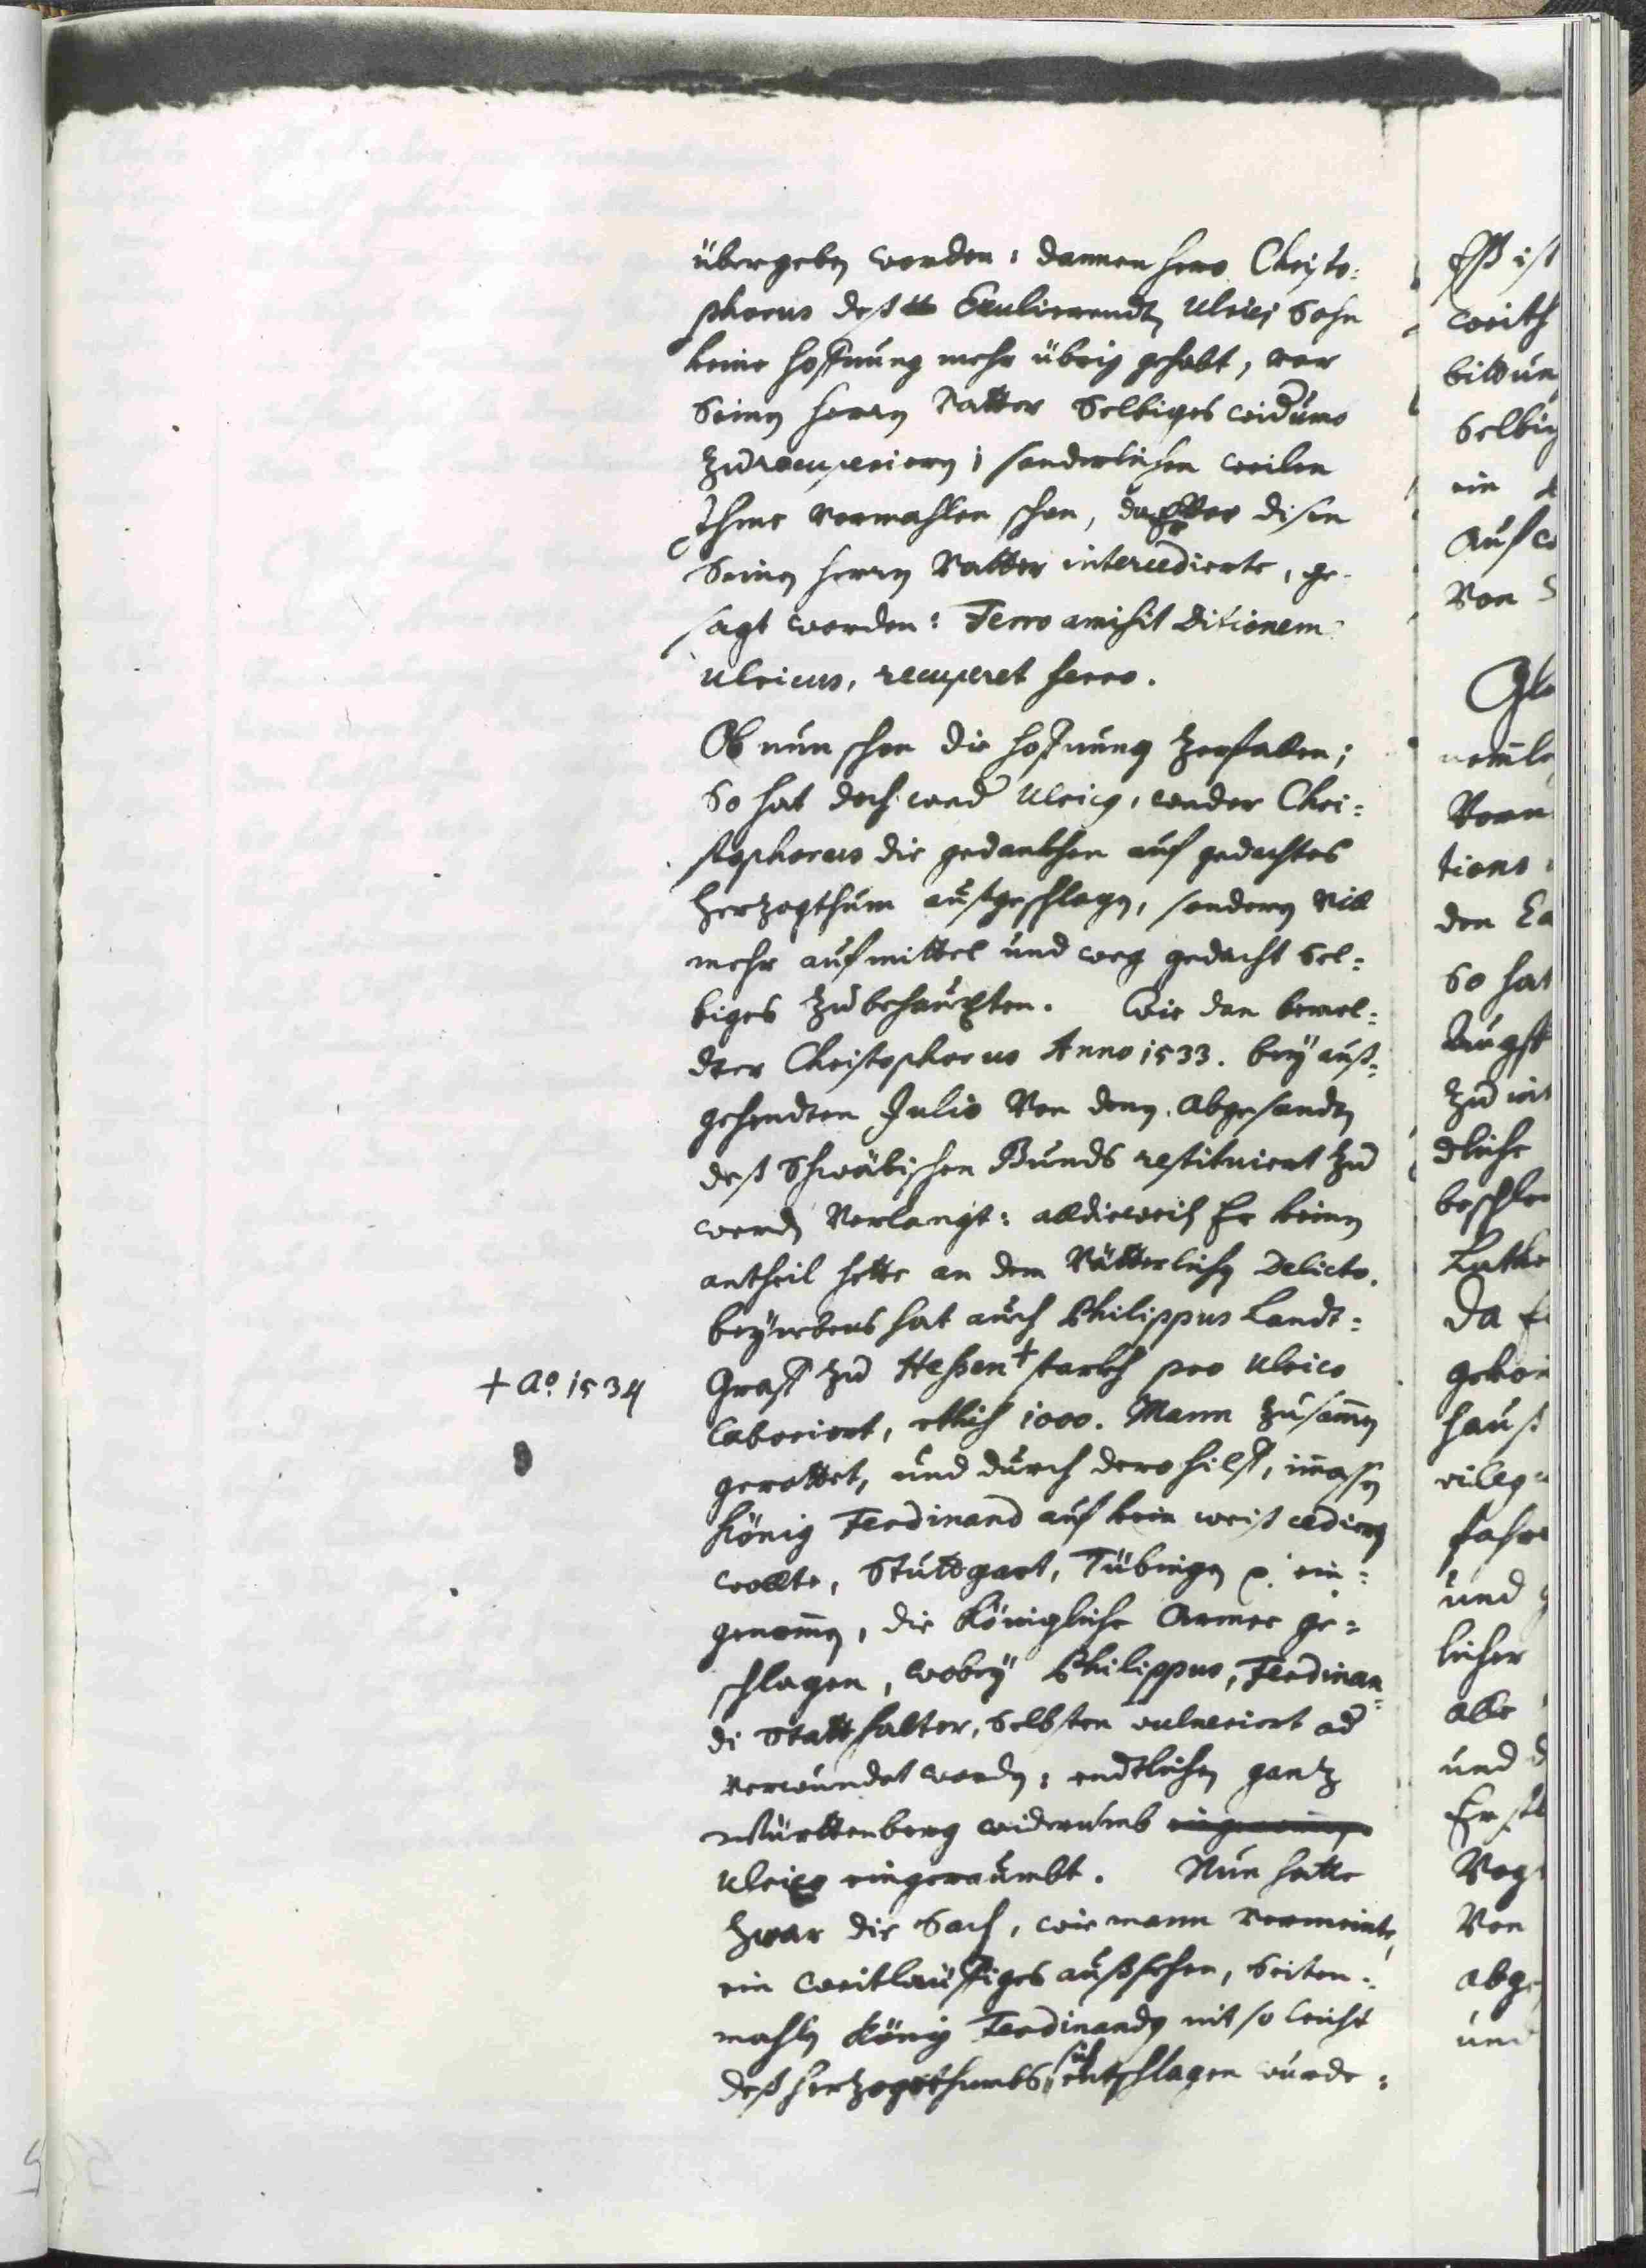 übergeben worden: dannenhero Christo:
phorus deß Exulierendtn Ulrici Sohn
keine hoffnung mehr übrig gehabt, vor
Seinen herrn Vatter Selbiges widumb
zurecuperiern; sonderlichen weilen
Ihme vormahlen schon, da Er vor disen
Seinen herrn Vatter intercedierte, ge-
sagt worden: Ferro amisit Ditionem
Ulricus, recuperet ferro.
Ob nun schon die hoffnung zerfallen;
So hat doch wed Ulricus, weder Chri:
stophorus die gedankhen auf gedachtes
Herzogthum außgeschlagen, sondern vill
mehr auf mittel und weg gedacht Sel:
biges zubehaupten. Wie dan bemel:
dter Christophorus Anno 1533. bey auß:
gehendten Julio von denen abgesandtn
deß Schwäbischen Bunds restituiert zu
werden verlangt: alldieweil Er keinen
antheil hette an dem Vätterlichen Delicto.
beynebens hat auch Philippus Landt:
+ Ao. 1534
Graff zu Heßen + starkh pro Ulrico
laboriert, etlich 1000. Mann zusammen
gerottet, und durch dero hilff, immassen
König Ferdinand auf kein weiß cediern
wollte, Stuttgart, Tübingen p. ein:
genommen, die Königliche Armee ge:
schlagen, wobey Philippus, Ferdinan:
di Statthalter, Selbsten vulneriert od
verwundet worden; endtlichen gantz
Württenberg widerumb
Ulrico eingeraumbt. Nun hatte
zwar die Sach, wie mann vermeinte,
ein weitläuffiges außsehen, Seiten:
mahlen König Ferdinandus nit so leicht
deß Herzogthumbs sich entschlagen wurde:
Eß ist
weith
bittun
Selbig
ein
Auf
Von
Gle
nemle
Vorm
tions
den
So hat
zu
dliche
beschlo
Luthe
Da
haus
vileg
fahr
und
licher
alle
und
Er
Vog
Von
abge
und